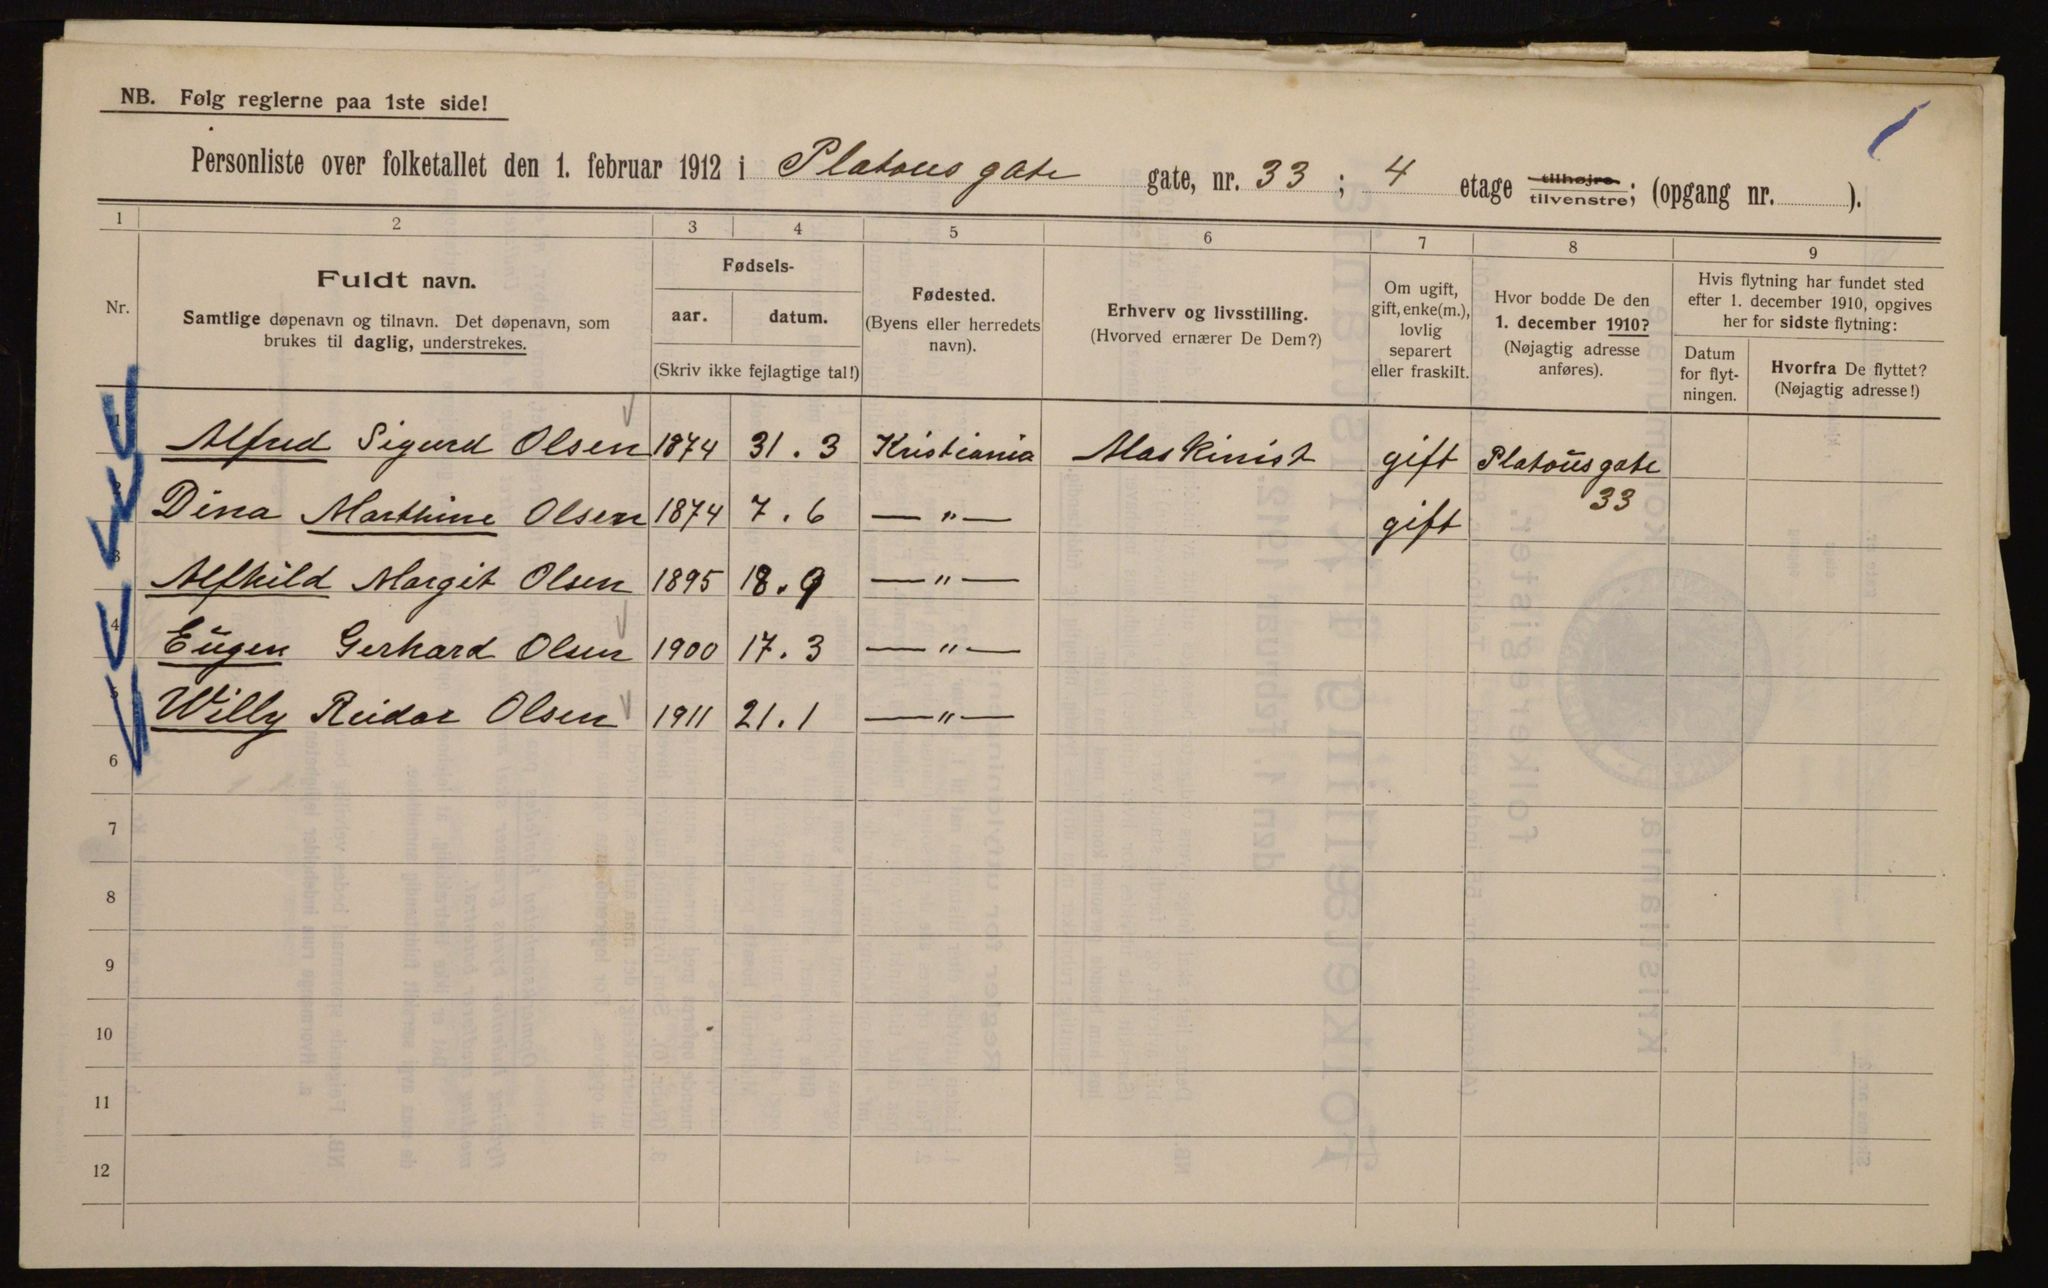 NB. Følg reglerne paa 1ste side!
Personliste over folketallet den 1. februar 1912 i Platous gate gate, nr. 33 ; 4 etage tilhøjre tilvenstre; (opgang nr. ).
1 2 3 4 5 6 7 8 9
Nr.
Fuldt navn.
Samtlige døpenavn og tilnavn. Det døpenavn, som
brukes til daglig, understrekes.
Fødsels-
aar. datum.
(Skriv ikke fejlagtige tal!)
Fødested.
(Byens eller herredets
navn).
Erhverv og livsstilling.
(Hvorved ernærer De Dem?)
Om ugift,
gift, enke(m.),
lovlig
separert
eller fraskilt.
Hvor bodde De den
1. december 1910?
(Nøjagtig adresse
anføres).
Hvis flytning har fundet sted
efter 1. december 1910, opgives
her for sidste flytning:
Datum
for flyt-
ningen.
Hvorfra De flyttet?
(Nøjagtig adresse!)
1 Alfred Sigurd Olsen 1874 31.3 Kristiania Maskinist gift Platous gate
33
Dina Marthine Olsen 1874 7.6 — " — gift
3 Alfhild Margit Olsen 1895 18.9 — " —
4 Eugen Gerhard Olsen 1900 17.3 — " —
5 Willy Reidar Olsen 1911 21.1 — " —
6
7
8
9
10
11
12